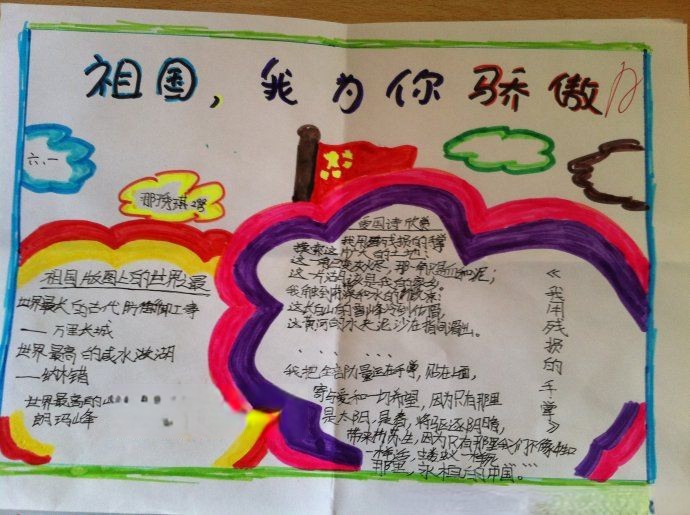 祖国，我为你骄傲
六、一
那琇琪 2号
祖国版图上的世界之最
世界最长的古代防御工事
——万里长城
世界最高的咸水湖
——纳木错
世界最高的山
朗玛峰
爱国诗欣赏
我用残损的手掌
摸索这广大的土地：
这一角已变成灰烬，那一角只是血和泥；
这一片湖该是我的家乡，
这长白山的雪峰冷到彻骨，
这黄河的水夹泥沙在指间滑出。
......
我把全部力量运在手掌，贴在上面，
寄与爱和一切希望，因为只有那里
是太阳，是春，将驱逐阴暗，
带来苏生，因为只有那里我们不像牲口
一样活，蝼蚁一样死……
那里，永恒的中国。
《我用残损的手掌》